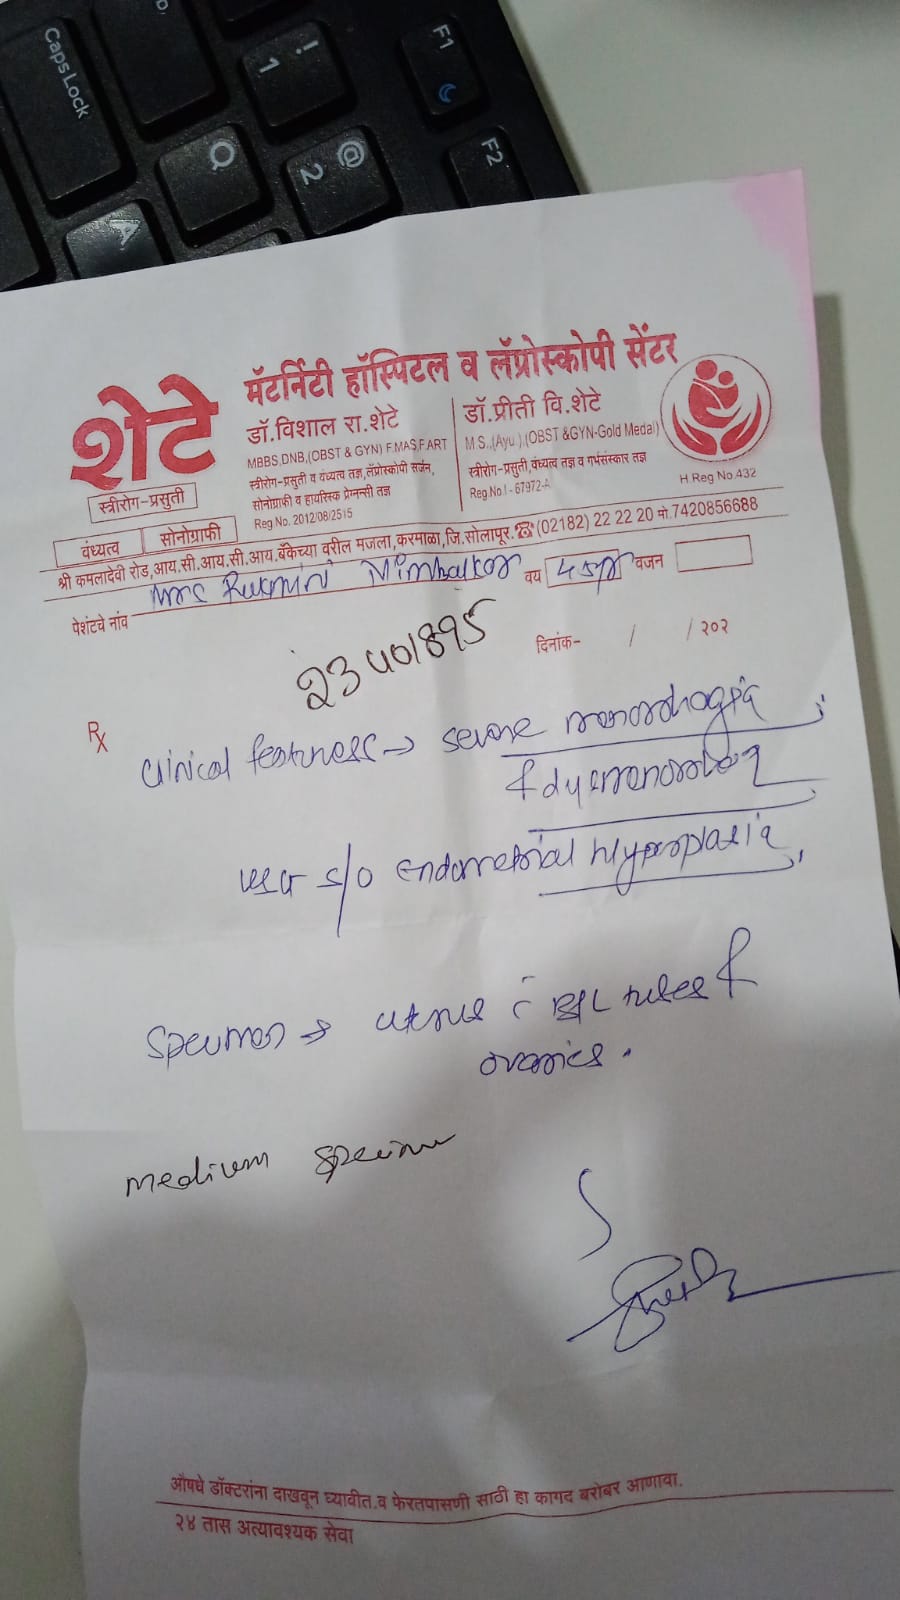 Caps Lock
! 1
F1
Q
@ 2
F2
A
शेटे
मॅटर्निटी हॉस्पिटल व लॅप्रोस्कोपी सेंटर
डॉ.विशाल रा.शेटे
MBBS,DNB,(OBST & GYN) F.MAS,F.ART
स्त्रीरोग-प्रसुती व वंध्यत्व तज्ञ,लॅप्रोस्कोपी सर्जन,
सोनोग्राफी व हायरिस्क प्रेग्नन्सी तज्ञ
Reg No. 2012/08/2515
डॉ.प्रीती वि.शेटे
M.S.,(Ayu.),(OBST &GYN-Gold Medal)
स्त्रीरोग-प्रसुती,वंध्यत्व तज्ञ व गर्भसंस्कार तज्ञ
Reg.No.I - 67972-A
H.Reg No.432
स्त्रीरोग-प्रसुती
वंध्यत्व सोनोग्राफी
श्री कमलादेवी रोड,आय.सी.आय.सी.आय.बँकेच्या वरील मजला,करमाळा,जि.सोलापूर.☎(02182) 22 22 20 मो.7420856688
पेशंटचे नांव Mrs Rukmini Nimbalkar वय 45y वजन
दिनांक- / /२०२
23401895
Rx
clinical features → severe menorrhagia
& dysmenorrhea
USG s/o endometrial hyperplasia
Specimen → uterus c̄ B/L tubes &
ovaries.
medium
औषधे डॉक्टरांना दाखवून घ्यावीत.व फेरतपासणी साठी हा कागद बरोबर आणावा.
२४ तास अत्यावश्यक सेवा